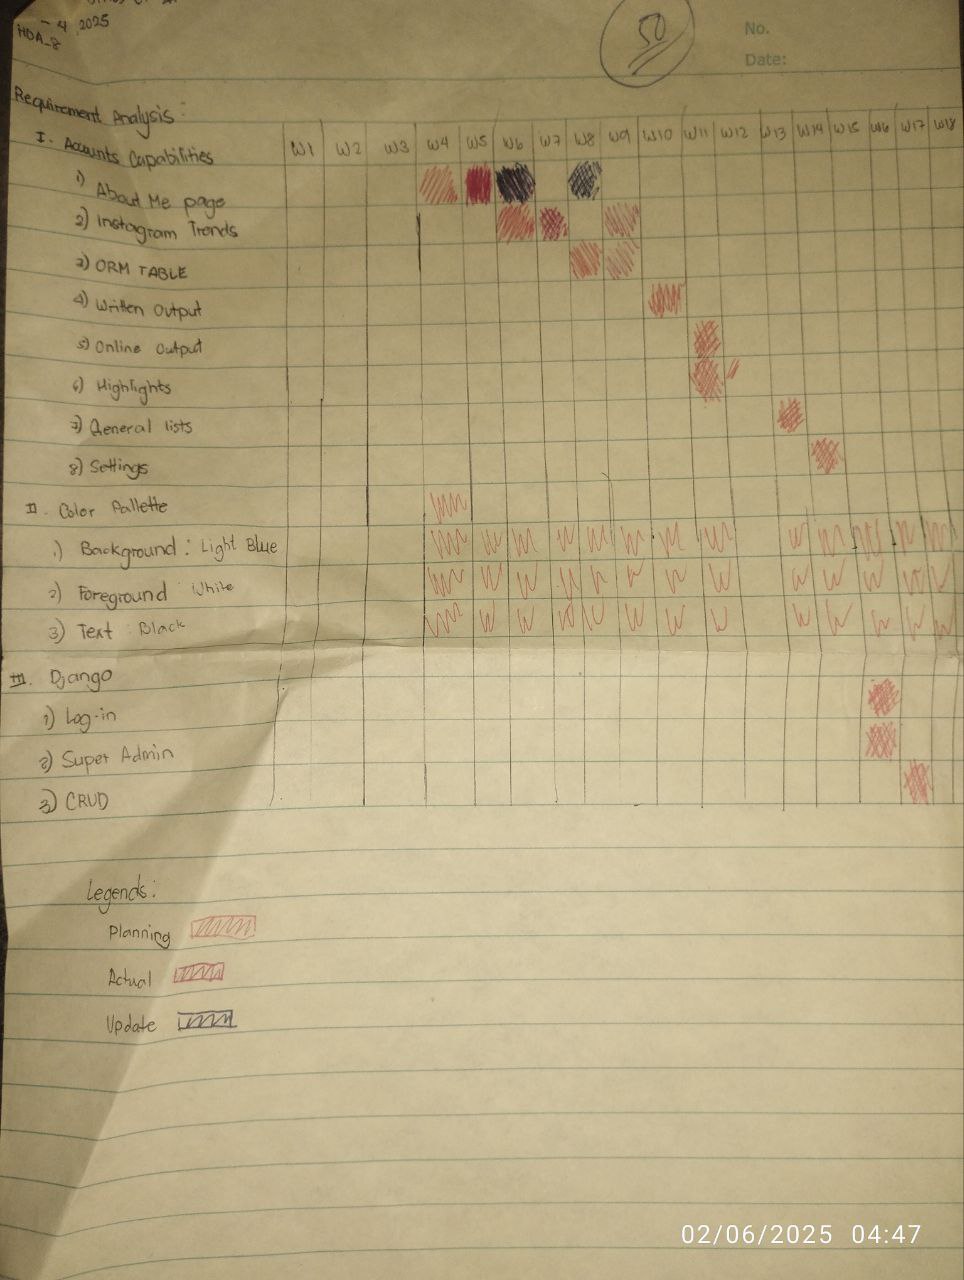 - 4, 2025
HDA_8
50
No.
Date:
Requirement Analysis:
W1 W2 W3 W4 W5 W6 W7 W8 W9 W10 W11 W12 W13 W14 W15 W16 W17 W18
I. Accounts Capabilities
1) About Me page
2) Instagram Trends
3) ORM TABLE
4) Written Output
5) Online Output
6) Highlights
7) General lists
8) Settings
II. Color Pallette
1) Background: Light Blue
2) Foreground: White
3) Text: Black
III. Django
1) Log-in
2) Super Admin
3) CRUD
Legends:
Planning
Actual
Update
02/06/2025 04:47